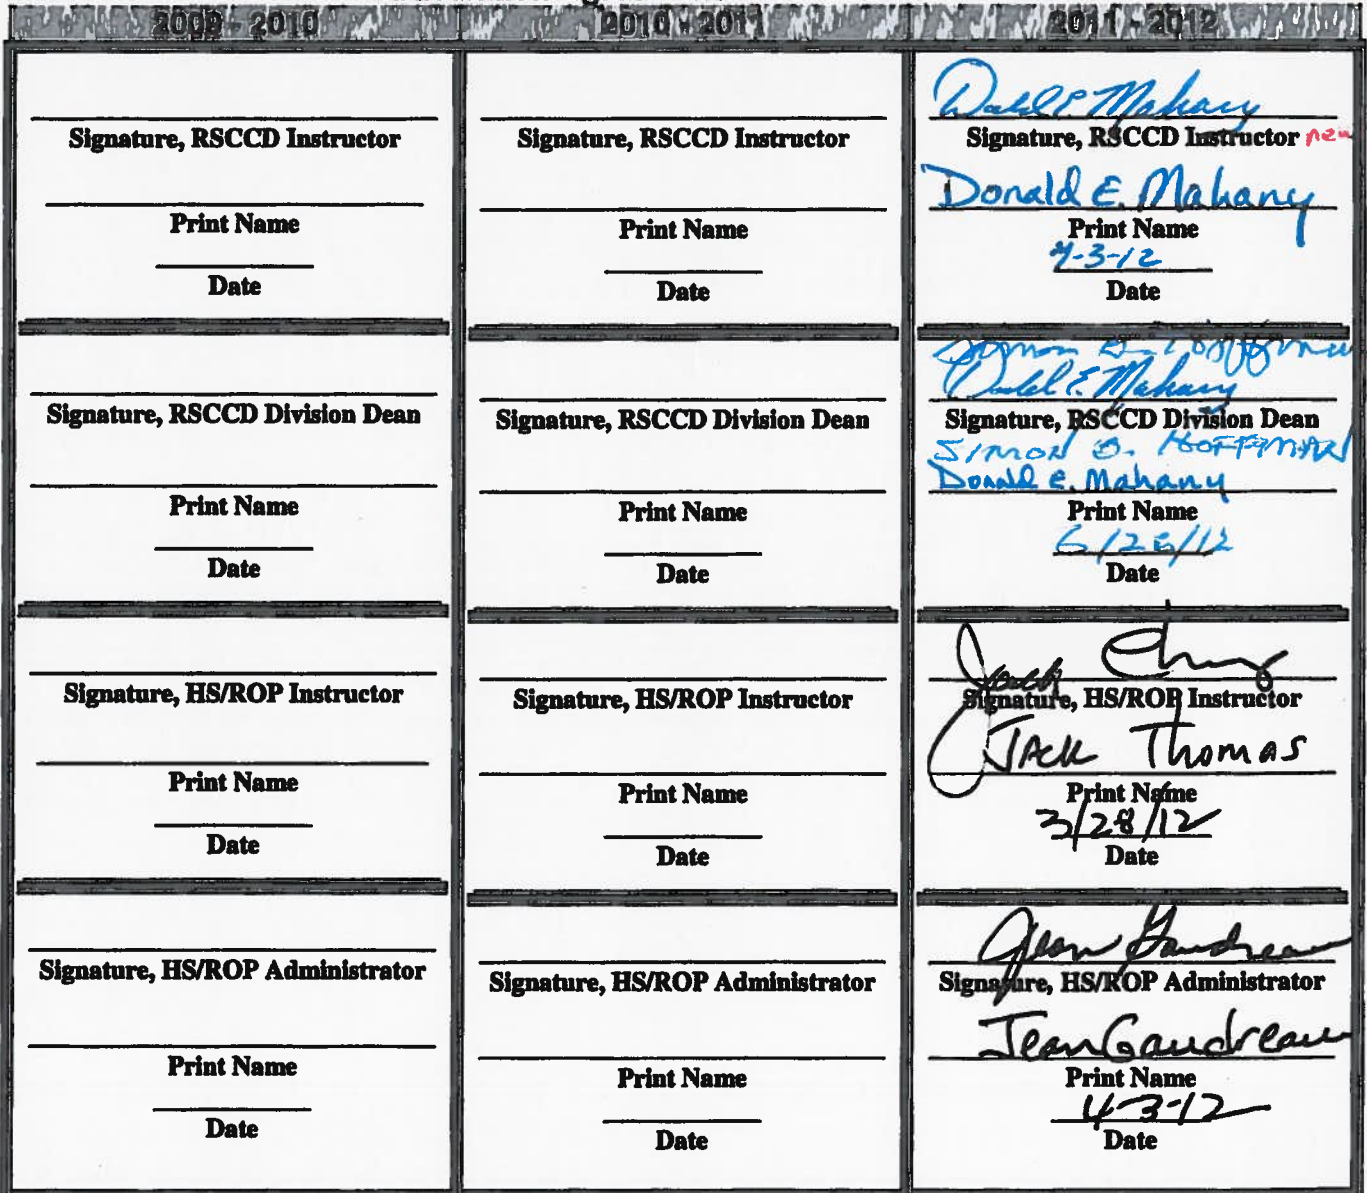 2009 - 2010
2010 - 2011
2011 - 2012
Signature, RSCCD Instructor
Print Name
Date
Signature, RSCCD Division Dean
Print Name
Date
Signature, HS/ROP Instructor
Print Name
Date
Signature, HS/ROP Administrator
Print Name
Date
Signature, RSCCD Instructor
Print Name
Date
Signature, RSCCD Division Dean
Print Name
Date
Signature, HS/ROP Instructor
Print Name
Date
Signature, HS/ROP Administrator
Print Name
Date
Donald E. Mahany
Signature, RSCCD Instructor new
Donald E. Mahany
Print Name
4-3-12
Date
Simon B. Hoffman
Donald E. Mahany
Signature, RSCCD Division Dean
SIMON B. HOFFMAN
Donald E. Mahany
Print Name
6/26/12
Date
Signature, HS/ROP Instructor
JACK Thomas
Print Name
3/28/12
Date
Jean Gaudreau
Signature, HS/ROP Administrator
Jean Gaudreau
Print Name
4-3-12
Date